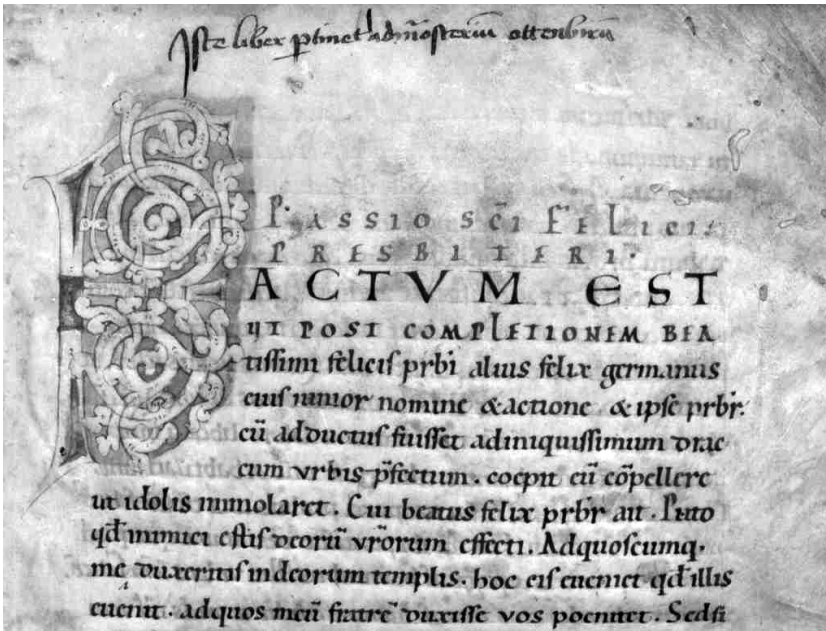 Iste liber ptinet ad mōsteriū ottenburñ
PASSIO SC̄I FELICIS
PRESBITERI.
FACTVM EST
UT POST COMPLETIONEM BEA
tissimi felicis prb̄i alius felix germanus
eius iunior nomine &actione & ipse prb̄r.
cū adductus fuisset adiniquissimum drac
cum vrbis p̄fectum. coepit eū cōpellere
ut idolis immolaret. Cui beatus felix prb̄r ait. Puto
qđ inimici estis deorū vr̄orum effecti. Adquoscumq;
me duxeritis indeorum templis. hoc eis eueniet qđ illis
euenit. adquos meū fratrē duxisse vos poenitet. Sedsi